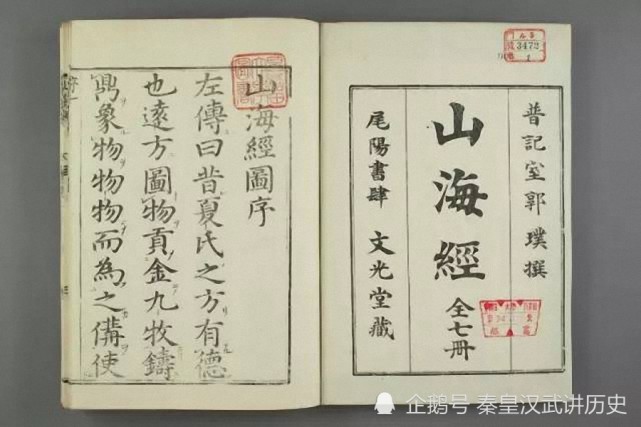 普記室郭璞撰
山海經
全七冊
尾陽書肆 文光堂藏
3472
1
山海經圖序
左傳曰昔夏氏之方有德
也遠方圖物貢金九牧鑄
鼎象物物物而為之備使
企鹅号 秦皇汉武讲历史